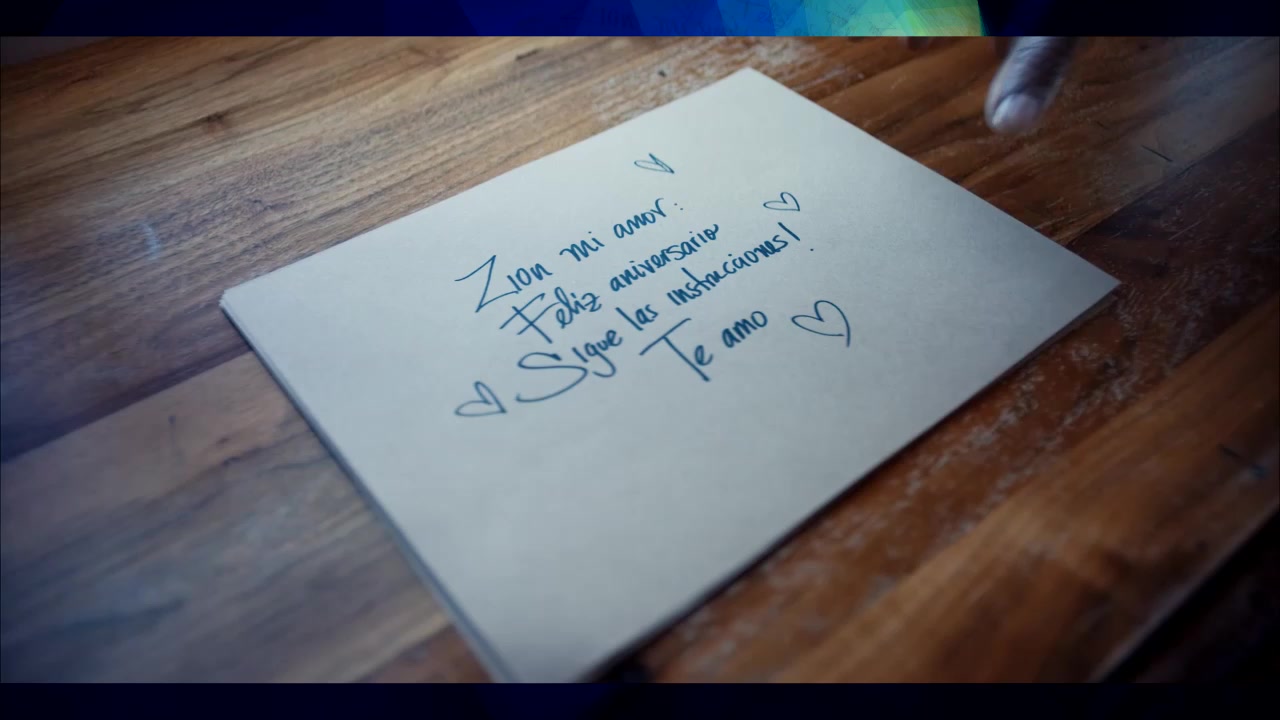 Zion mi amor:
Feliz aniversario
Sigue las instrucciones!
Te amo